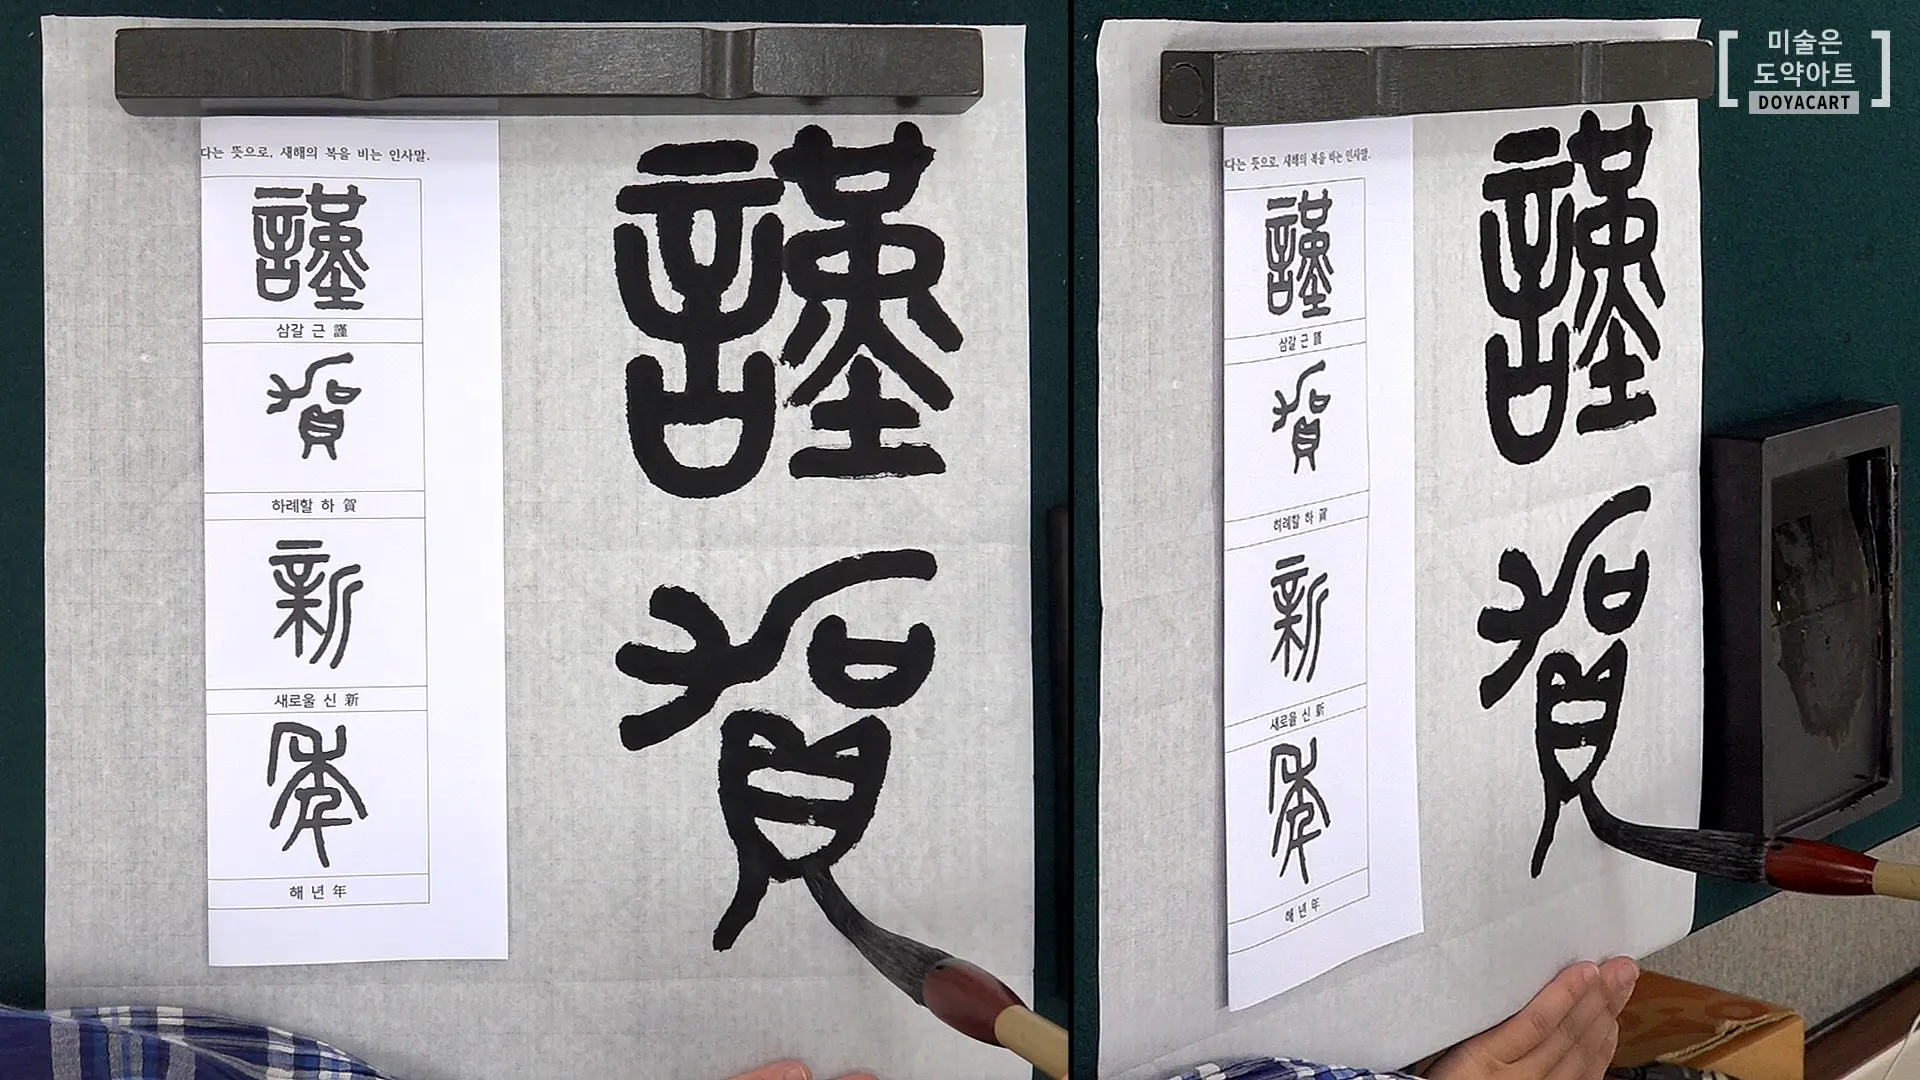 다는 뜻으로, 새해의 복을 비는 인사말.
謹
삼갈 근 謹
賀
하례할 하 賀
新
새로울 신 新
年
해 년 年
謹
賀
다는 뜻으로, 새해의 복을 비는 인사말.
謹
삼갈 근 謹
賀
하례할 하 賀
新
새로울 신 新
年
해 년 年
謹
賀
미술은
도약아트
DOYACART